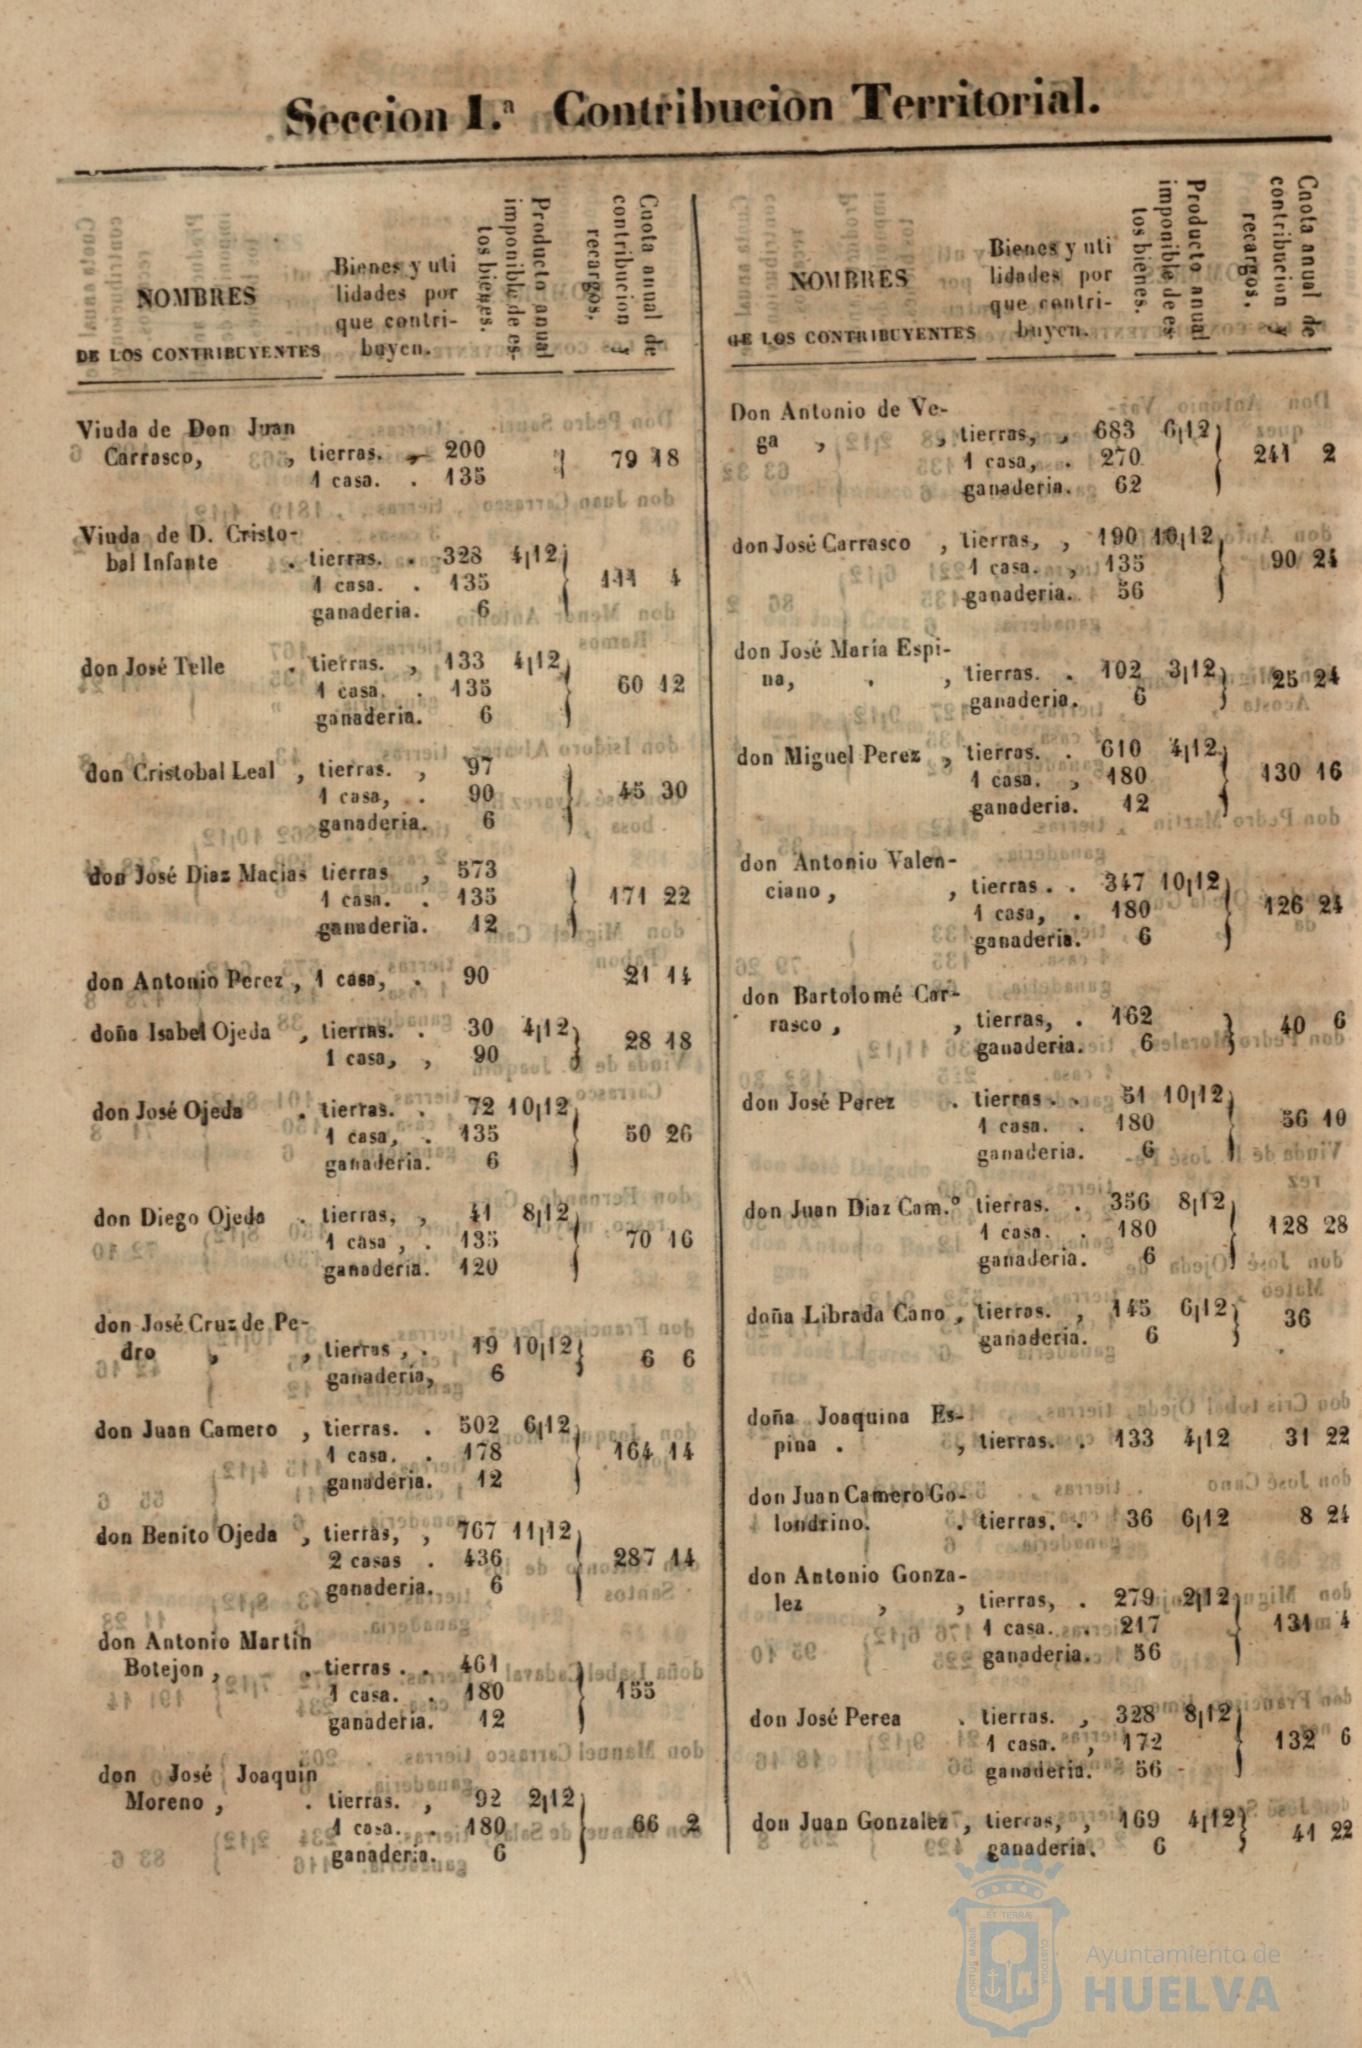 Seccion 1.ª Contribucion Territorial.
NOMBRES
DE LOS CONTRIBUYENTES
Bienes y uti
lidades por
que contri-
buyen.
Producto anual
imponible de es-
tos bienes.
Cuota anual de
contribucion y
recargos.
Viuda de Don Juan
Carrasco, , tierras. , 200
1 casa. . 135 } 79 18
Viuda de D. Cristo-
bal Infante . tierras. . 328 4|12
1 casa. . 135 } 111 4
ganaderia. 6
don José Telle . tierras. , 133 4|12
1 casa. . 135 } 60 12
ganaderia. 6
don Cristobal Leal , tierras. , 97
1 casa, . 90 } 45 30
ganaderia. 6
don José Diaz Macias tierras , 573
1 casa. . 135 } 171 22
ganaderia. 12
don Antonio Perez , 1 casa, . 90 21 14
doña Isabel Ojeda , tierras. . 30 4|12
1 casa, , 90 } 28 18
don José Ojeda . tierras. . 72 10|12
1 casa, . 135 } 50 26
ganaderia. 6
don Diego Ojeda . tierras, , 41 8|12
1 casa , . 135 } 70 16
ganaderia. 120
don José Cruz de Pe-
dro , , tierras , . 19 10|12
ganaderia, 6 } 6 6
don Juan Camero , tierras. . 502 6|12
1 casa. . 178 } 164 14
ganaderia. 12
don Benito Ojeda , tierras, , 767 11|12
2 casas . 436 } 287 14
ganaderia. 6
don Antonio Martin
Botejon , . tierras . . 461
1 casa. . 180 } 155
ganaderia. 12
don José Joaquin
Moreno , . tierras. , 92 2|12
1 casa. . 180 } 66 2
ganaderia. 6
NOMBRES
DE LOS CONTRIBUYENTES
Bienes y uti
lidades por
que contri-
buyen.
Producto anual
imponible de es-
tos bienes.
Cuota anual de
contribucion y
recargos.
Don Antonio de Ve-
ga , , tierras, , 683 6|12
1 casa, . 270 } 241 2
ganaderia. 62
don José Carrasco , tierras, , 190 10|12
1 casa. , 135 } 90 24
ganaderia. 56
don José Maria Espi-
na, . , tierras. . 102 3|12
ganaderia. 6 } 25 24
don Miguel Perez , tierras. . 610 4|12
1 casa. , 180 } 130 16
ganaderia. 12
don Antonio Valen-
ciano , , tierras . . 347 10|12
1 casa, . 180 } 126 24
ganaderia. 6
don Bartolomé Car-
rasco , , tierras, . 162
ganaderia. 6 } 40 6
don José Perez . tierras . . 51 10|12
1 casa. . 180 } 56 10
ganaderia. 6
don Juan Diaz Cam.º tierras. . 356 8|12
1 casa. . 180 } 128 28
ganaderia. 6
doña Librada Cano , tierras. , 145 6|12
ganaderia. 6 } 36
doña Joaquina Es-
pina . , tierras. . 133 4|12 31 22
don Juan Camero Go-
londrino. . tierras. . 36 6|12 8 24
don Antonio Gonza-
lez , , tierras, . 279 2|12
1 casa. . 217 } 131 4
ganaderia. 56
don José Perea . tierras. , 328 8|12
1 casa. , 172 } 132 6
ganaderia. 56
don Juan Gonzalez , tierras, , 169 4|12
ganaderia. 6 } 41 22
ET TERRÆ
PORTUS MARIS
CUSTODIA
Ayuntamiento de
HUELVA